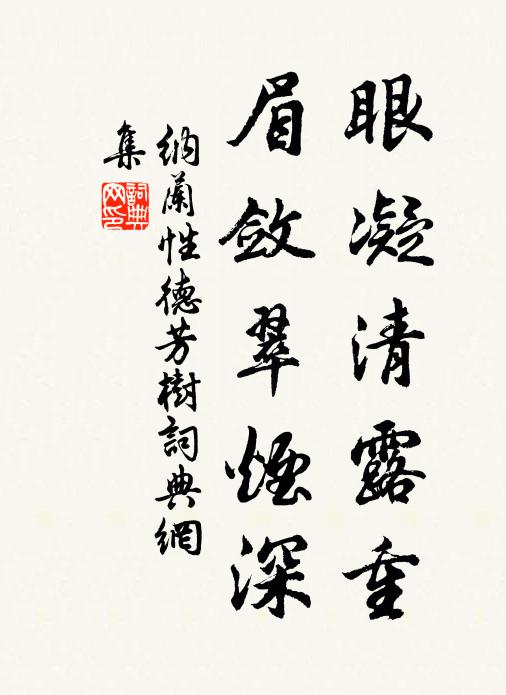 眼凝清露重
眉斂翠煙深
納蘭性德芳樹詞典網
集
詞典
网印